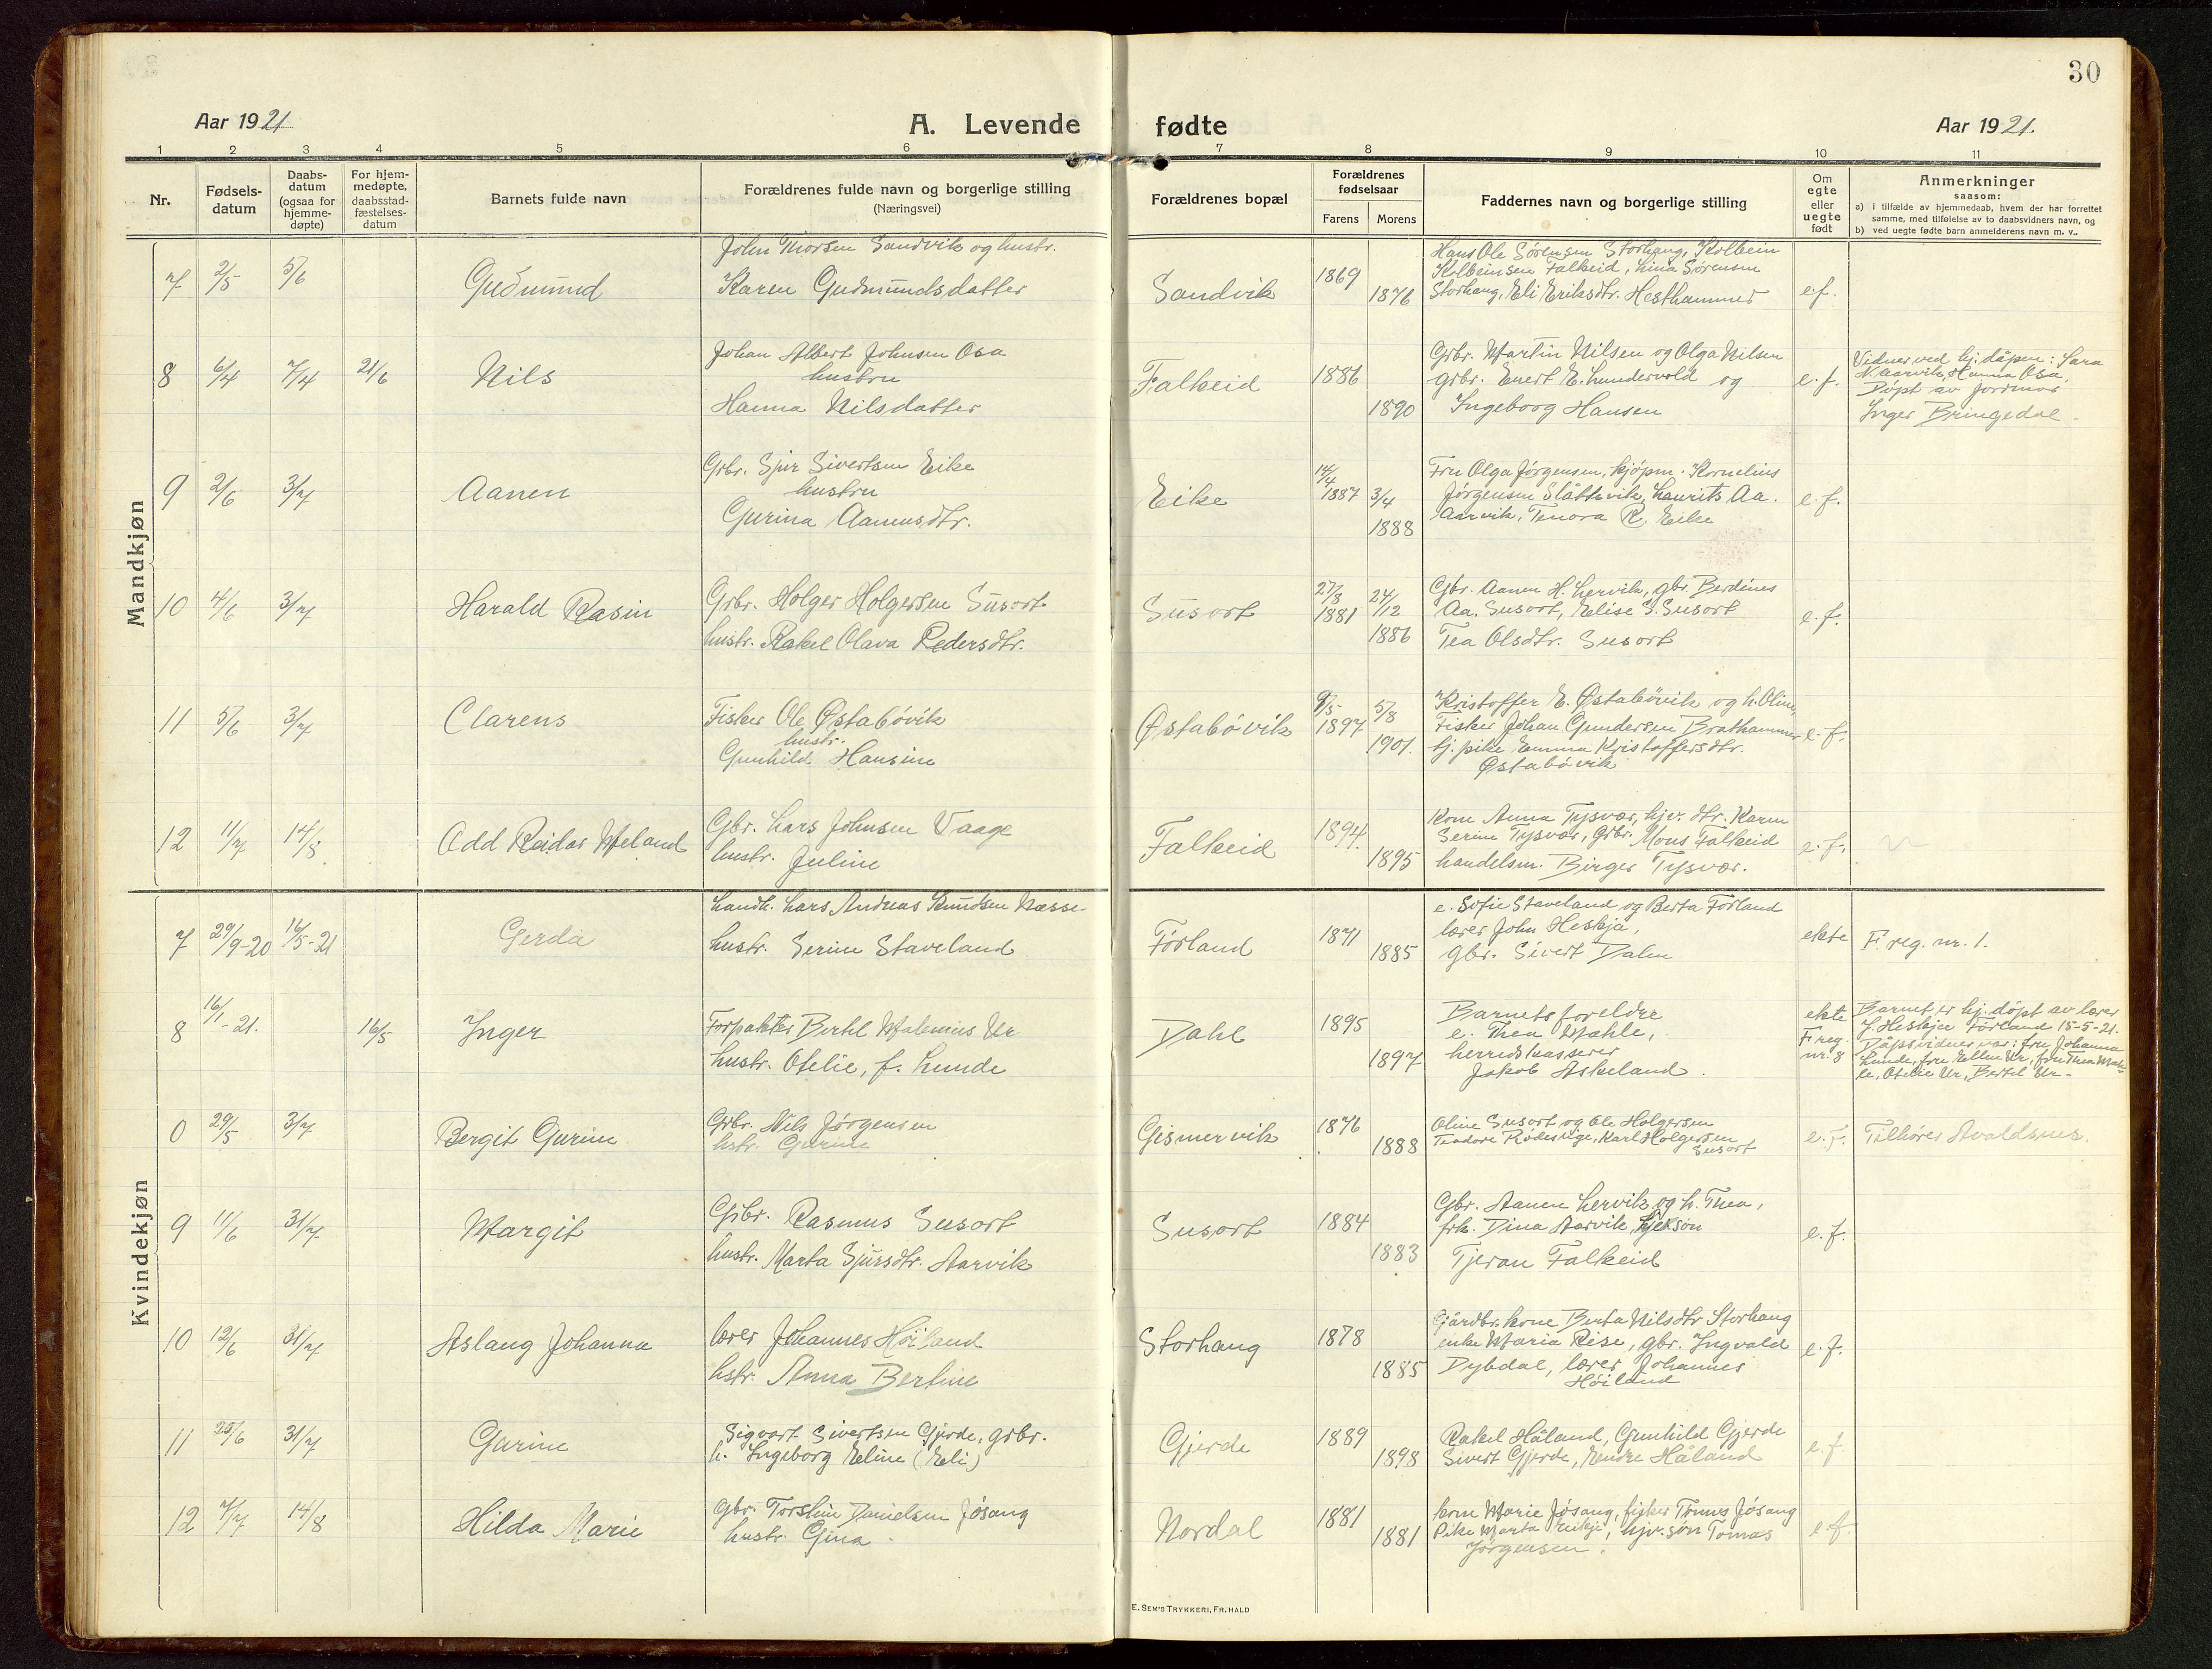 30
Aar 1921
A. Levende fødte
Aar 1921.
1 2 3 4 5 6 7 8 9 10 11
Nr.
Fødsels-
datum
Daabs-
datum
(ogsaa for
hjemme-
døpte)
For hjem-
medøpte,
daabsstad-
fæstelses-
datum
Barnets fulde navn
Forældrenes fulde navn og borgerlige stilling
(Næringsvei)
Forældrenes bopæl
Forældrenes
fødselsaar
Farens Morens
Faddernes navn og borgerlige stilling
Om
egte
eller
uegte
født
Anmerkninger
saasom:
a) i tilfælde av hjemmedaab, hvem der har forrettet
samme, med tilføielse av to daabsvidners navn, og
b) ved uegte fødte barn anmelderens navn m. v..
Mandkjøn
7 2/5 5/6 Gudmund
John Thorsen Sandvik og hustr.
Karen Gudmundsdatter
Sandvik 1869 1876
Hans Ole Sørensen Storhaug, Kolbein
Kolbeinsen Falkeid, Lina Sørensen
Storhaug, Eli Eriksdtr. Hesthammer
e.f.
8 6/4 7/4 21/6 Nils
Johan Albert Johnsen Osa
hustru
Hanna Nilsdatter
Falkeid 1886 1890
Grbr. Martin Nilsen og Olga Nilsen
grbr. Enert E. Lundervold og
Ingeborg Hansen
e.f.
Vidner ved hj. dåpen: Sara
N. Aarvik, Hanna Osa,
Døpt av jordmor
Inger Bringedal.
9 2/6 3/7 Aanen
Grbr. Sjur Sivertsen Eike
hustru
Gurina Aanensdtr.
Eike 14/4 1887 3/4 1888
Fru Olga Jørgensen, kjøpm. Kornelius
Jørgensen Slåttevik, Laurits Aa.
Aarvik, Tenora R. Eike
e.f.
10 4/6 3/7 Harald Rasin
Grbr. Holger Holgersen Susort
hustr. Rakel Olava Pedersdtr.
Susort 27/8 1881 24/12 1886
Gbr. Aanen H. Lervik, gbr. Berdines
Aa. Susort, Elise S. Susort
Tea Olsdtr. Susort
e.f.
11 5/6 3/7 Clarens
Fisker Ole Østabøvik
hustr.
Gunhild Hansine
Østabøvik 9/5 1897 5/8 1901.
Kristoffer E. Østabøvik og h. Oline,
Fisker Johan Gundersen Brathammer
tj. pike Emma Kristoffersdtr.
Østabøvik
e.f.
12 11/7 14/8 Odd Reidar Meland
Gbr. Lars Johnsen Vaage
hustr. Juline
Falkeid 1894. 1895
Kone Anna Tysvær, hjv. dtr. Karen
Serine Tysvær, Grbr. Mons Falkeid
handelsm. Birger Tysvær.
e.f.
Kvindekjøn
7 29/9-20 16/5-21 Gerda
Landh. Lars Andreas Knudsen Næsse
hustr. Serine Staveland
Førland 1871 1885
e. Sofie Staveland og Berta Førland
lærer John Heskja,
gbr. Sivert Dalen
ekte
F. reg. nr. 1.
8 16/1-21. 16/5 Inger
Forpakter Bertel Malenius Ur
hustr. Otelie, f. Lunde
Dahl 1895 1897
Barnets foreldre
e. Thea Mæhle,
herredskasserer
Jakob Askeland.
ekte
F reg.
nr. 8
Barnet er hj. døpt av lærer
J. Heskja Førland 15-5-21.
Dåpsvidner var: fru Johanna
Lunde, fru Ellen Ur, fru Thea Mæh-
le, Otelie Ur, Bertel Ur-
0 29/5 3/7 Bergit Gurine
Grbr. Nils Jørgensen
hstr. Gurine
Gismervik 1876 1888
Oline Susort og Ole Holgersen
Teodore Rødesvige, Karl Holgersen
Susort
e.f. Tilhører Avaldsnes.
9 11/6 31/7 Margit
Grbr. Rasmus Susort
hustr. Marta Sjursdtr. Aarvik
Susort 1884 1883
Gbr. Aanen Lervik og h. Thea,
frk. Dina Aarvik,
Tjeran Falkeid
e.f.
10 12/6 31/7 Aslaug Johanna
lærer Johannes Høiland
hstr. Anna Bertine
Storhaug 1878 1885
Gårdbr. kone Berta Nilsdtr Storhaug
enke Maria Reise, gbr. Ingvald
Dybdal, lærer Johannes
Høiland
e.f.
11 25/6 31/7 Gurine
Sigvart Sivertsen Gjerde, grbr.
h. Ingeborg Eline (Eli)
Gjerde 1889 1898
Rakel Håland, Gunhild Gjerde
Sivert Gjerde, Endre Håland
e.f.
12 7/7 14/8 Hilda Marie
Gbr. Torstein Danielsen Jøsang
hustr. Gina
Nordal 1881 1881
kone Marie Jøsang, fisker Tønnes Jøsang
Pike Marta Eikje, hjv. søn Tomas
Jørgensen.
e.f.
E. SEM'S TRYKKERI, FR.HALD